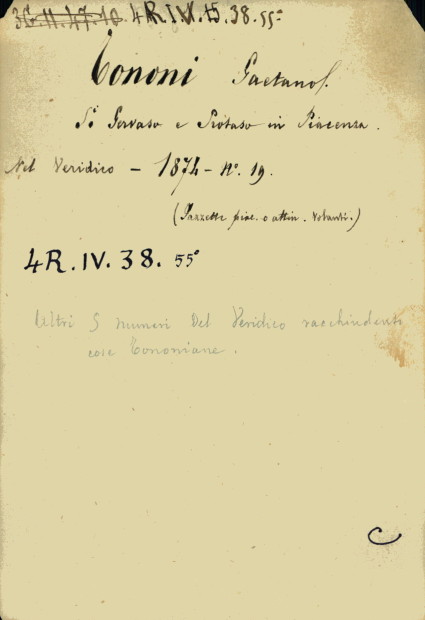 36.11.47.10 4R.IV.15.38.55°
Tononi Gaetano.
Si Gervaso e Protaso in Piacenza.
Nel Veridico – 1874 – N.° 19.
(Gazzette piac. o attin. volanti.)
4R.IV.38. 55°
Altri 5 numeri Del Veridico racchiudenti
cose Tononiane.
C